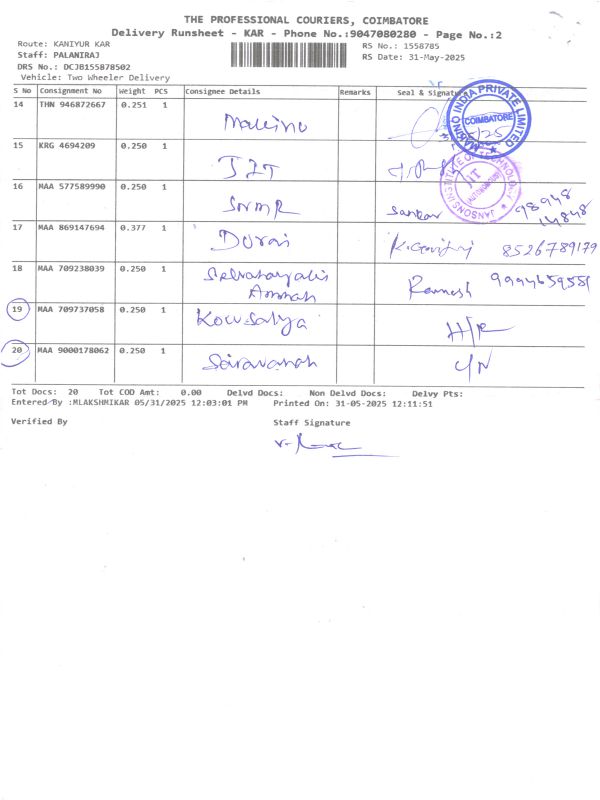 THE PROFESSIONAL COURIERS, COIMBATORE
Delivery Runsheet - KAR - Phone No.:9047080280 - Page No.:2
Route: KANIYUR KAR
RS No.: 1558785
Staff: PALANIRAJ
RS Date: 31-May-2025
DRS No.: DCJB155878502
Vehicle: Two Wheeler Delivery
S No Consignment No Weight PCS Consignee Details Remarks Seal & Signature
14 THN 946872667 0.251 1 Makino
MAKINO INDIA PRIVATE LIMITED COIMBATORE
15 KRG 4694209 0.250 1 JIT
INSTITUTE OF TECHNOLOGY JIT (AUTONOMOUS) JANSONS
16 MAA 577589990 0.250 1 SNMR Sankar 98948
14848
17 MAA 869147694 0.377 1 Durai 8526789179
18 MAA 709238039 0.250 1 Ramesh
Ammah
19 MAA 709737058 0.250 1 Kowsalya H/R
20 MAA 9000178062 0.250 1 Saravanah C/N
Tot Docs: 20 Tot COD Amt: 0.00 Delvd Docs: Non Delvd Docs: Delvy Pts:
Entered By :MLAKSHMIKAR 05/31/2025 12:03:01 PM Printed On: 31-05-2025 12:11:51
Verified By Staff Signature